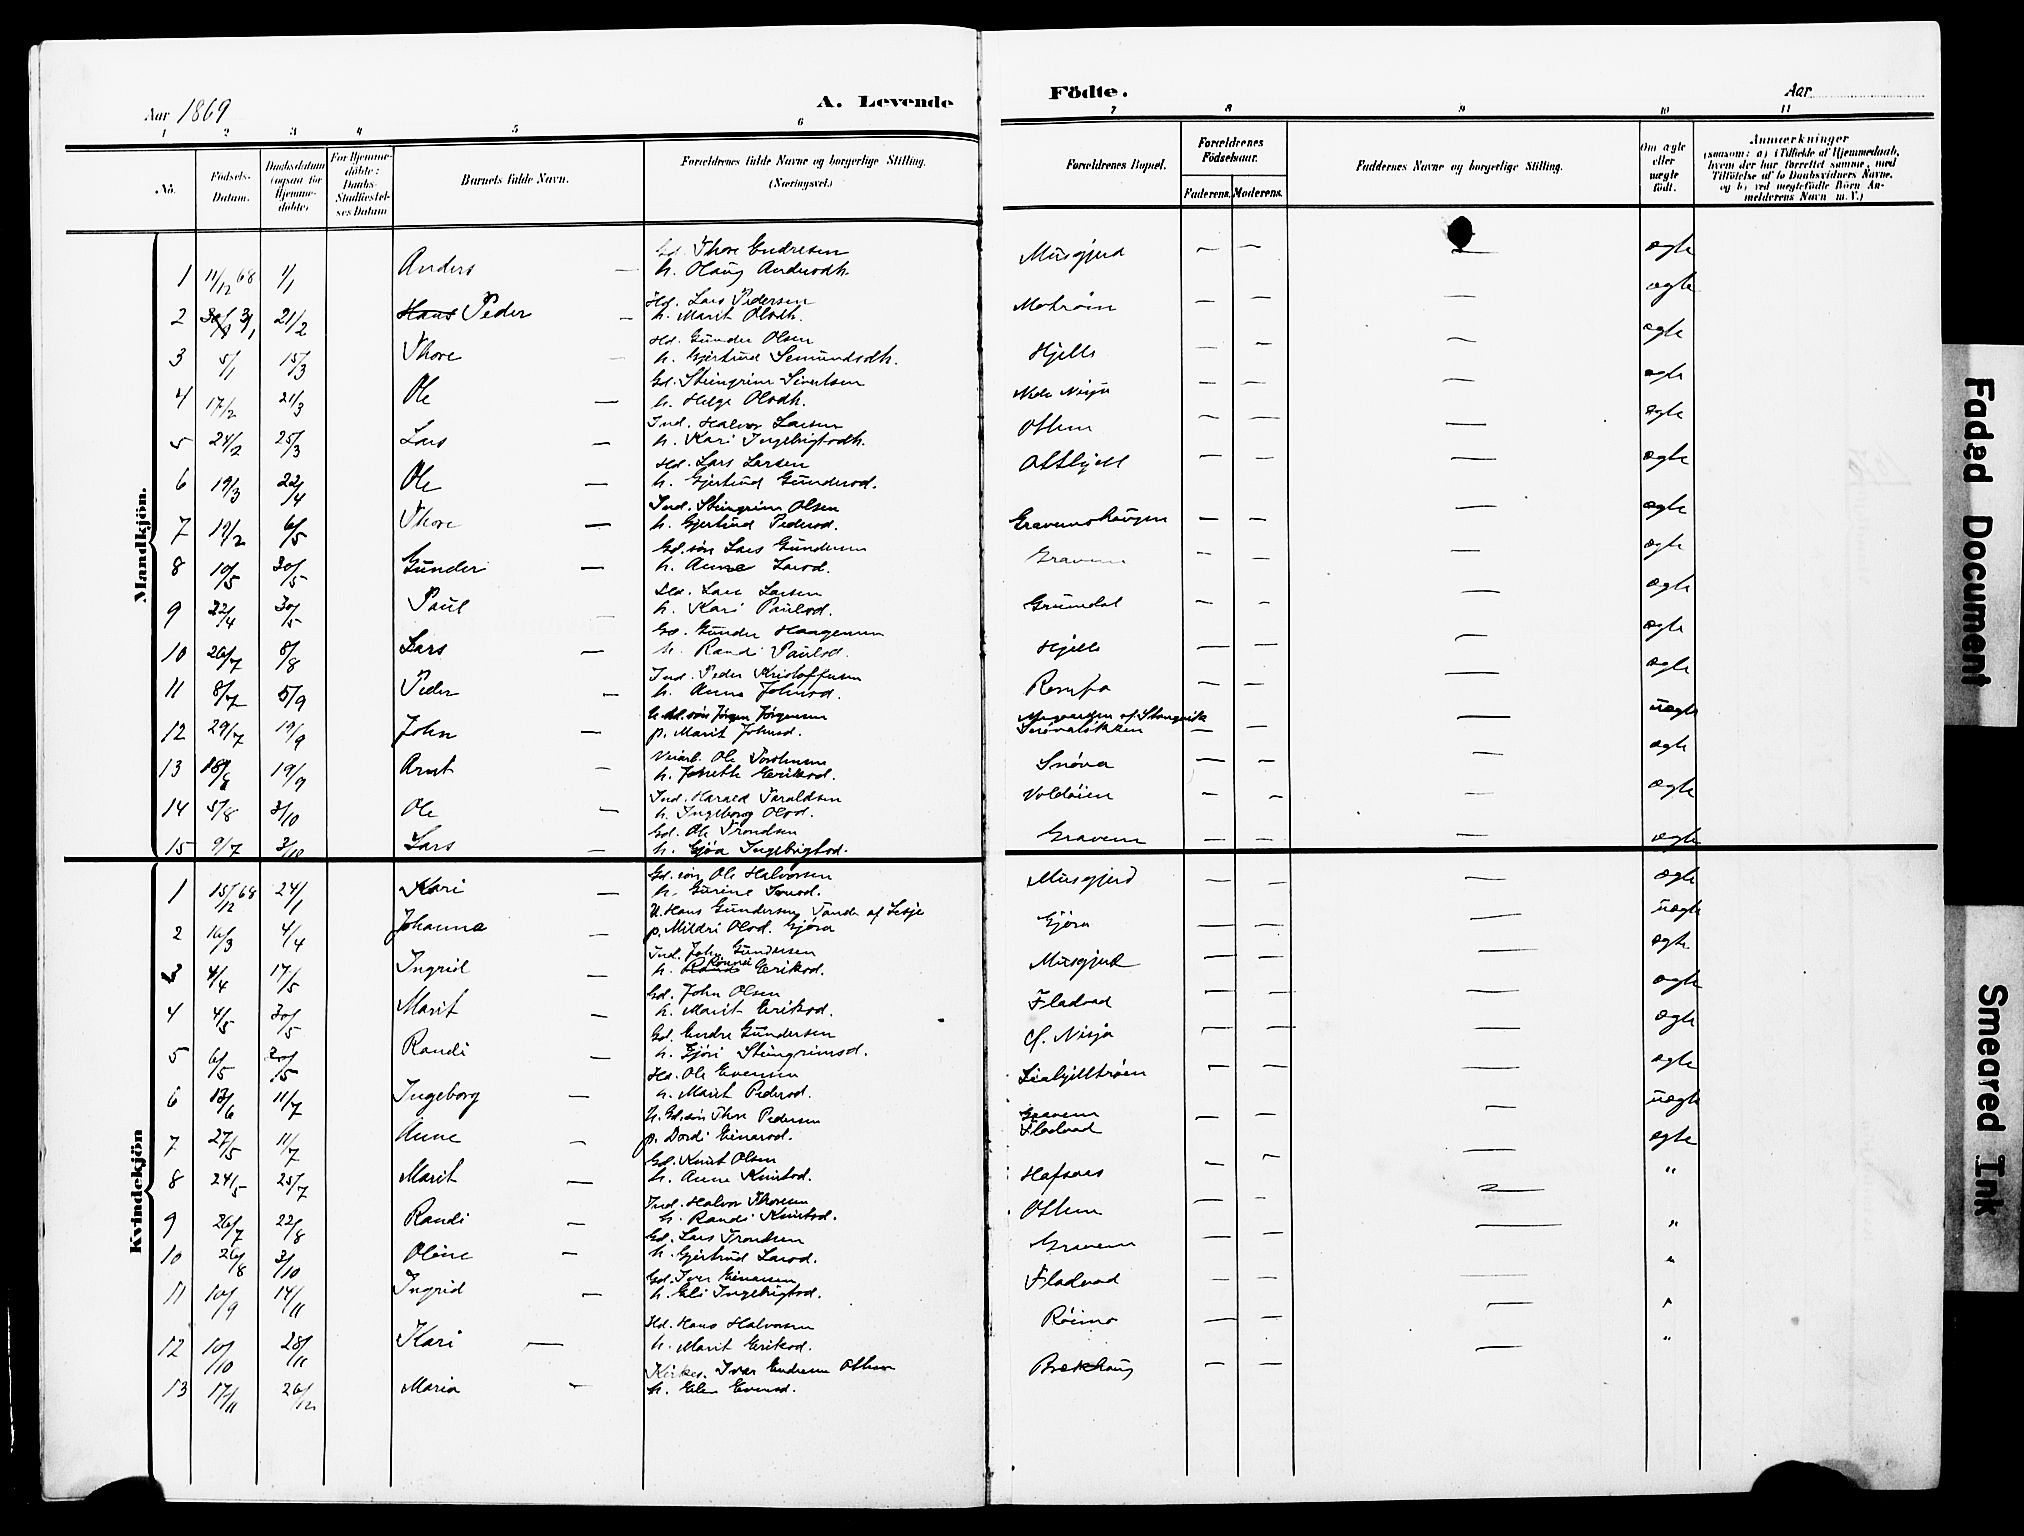 Aar 1869
A. Levende
Födte.
Aar
1 2 3 4 5 6 7 8 9 10 11
No.
Födsels-Datum.
Daabsdatum (ogsaa for Hjemmedöbte)
For Hjemmedöbte: Daabs-Stadfæstelses Datum
Barnets fulde Navn.
Forældrenes fulde Navne og borgerlige Stilling. (Næringsvei.)
Forældrenes Bopæl.
Forældrenes Födselsaar.
Faderens. Moderens.
Faddernes Navne og borgerlige Stilling.
Om ægte eller uægte födt.
Anmærkninger
(saasom: a) i Tilfælde af Hjemmedaab, hvem der har forrettet samme, med Tilföielse af to Daabsvidners Navne, og b) ved uægtefödte Börn Anmelderens Navn m. V.)
Mandkjön.
Gd. Thore Endresen
1 11/12 68 1/1 Anders — h. Olaug Andersdh. Musgjerd — — — ægte
Hd. Lars Pedersen
2 3/1 21/2 Hans Peder — h. Marit Olsdh. Motröen — — — ægte
Hd. Gunder Olsen
3 5/1 15/3 Thore — h. Gjertrud Semundsdh. Hjelle — — — ægte
Gd. Steingrim Sivertsen
4 17/2 21/3 Ole — h. Helge Olsdh. — — — ægte
Ind. Halvor Larsen
5 24/2 25/3 Lars — h. Kari Ingebrigtsdh. Ottem — — — ægte
Hd. Lars Larsen
6 19/3 22/4 Ole — h. Gjertrud Gundersd. — — — ægte
Ind. Steingrim Olsen
7 19/2 6/5 Thore — h. Gjertrud Pedersd. Gravemshaugen — — — ægte
Gd. sön Lars Gundersen
8 10/5 30/5 Gunder — h. Anne Larsd. Gravem — — — ægte
Hd. Lars Larsen
9 22/4 30/5 Paul — h. Kari Paulsd. Grundal — — — ægte
Gd. Gunder Haagensen
10 26/7 8/8 Lars — h. Randi Paulsd. Hjelle — — — ægte
Ind. Peder Kristoffersen
11 8/7 5/9 Peder — h. Anne Johnsd. Romfo — — — ægte
Jörgen Jörgensen
12 29/7 19/9 John — p. Marit Johnsd. — — — uægte
Ole
13 18/8 19/9 Arnt — h. Eriksd. Snöva — — — ægte
Ind. Harald Haraldsen
14 5/8 3/10 Ole — h. Ingeborg Olsd. Voldöien — — — ægte
Gd. Ole Trondsen
15 9/7 3/10 Lars — h. Gjöa Ingebrigtsd. Gravem — — — ægte
Kvindekjön
Gd. sön Ole Halvorsen
1 15/12 68 24/1 Kari — h. Gurine Musgjerd — — — ægte
U. Hans Gundersen Tande af Lesje
2 16/3 4/4 Johanna — p. Mildri Olsd. Gjöra Gjöra — — — uægte
Ind. John Gundersen
3 4/4 17/5 Ingrid — h. Rönnei Eriksd. Musgjerd — — — ægte
Gd. John Olsen
4 4/5 30/5 Marit — h. Marit Eriksd. Fladvad — — — ægte
Gd. Endre Gundersen
5 6/5 30/5 Randi — h. Gjöri Steingrimsd. Nisja — — — ægte
Hd. Ole Evensen
6 13/6 11/7 Ingeborg — h. Marit Pedersd. — — — ægte
U. Gd. sön Thore Pedersen Gravem
7 27/5 11/7 Anne — p. Dordi Einarsd. Fladvad — — — uægte
Gd. Knut Olsen
8 24/5 25/7 Marit — h. Anne Knutsd. Hafsaas — — — ægte
Ind. Halvor Thoresen
9 26/7 22/8 Randi — h. Randi Knutsd. Ottem — — — "
Gd. Lars Trondsen
10 26/8 3/10 Oline — h. Gjertrud Larsd. Gravem — — — "
Gd. Iver Einarsen
11 10/9 14/11 Ingrid — h. Eli Ingebrigtsd. Fladvad — — — "
Hd. Hans Halvorsen
12 10/10 28/11 Kari — h. Marit Eriksd. Röimo — — — "
Iver Endresen Ottem
13 17/11 26/12 Maria — h. Evensd. Brækhaug — — — "
Faded Document
Smeared Ink